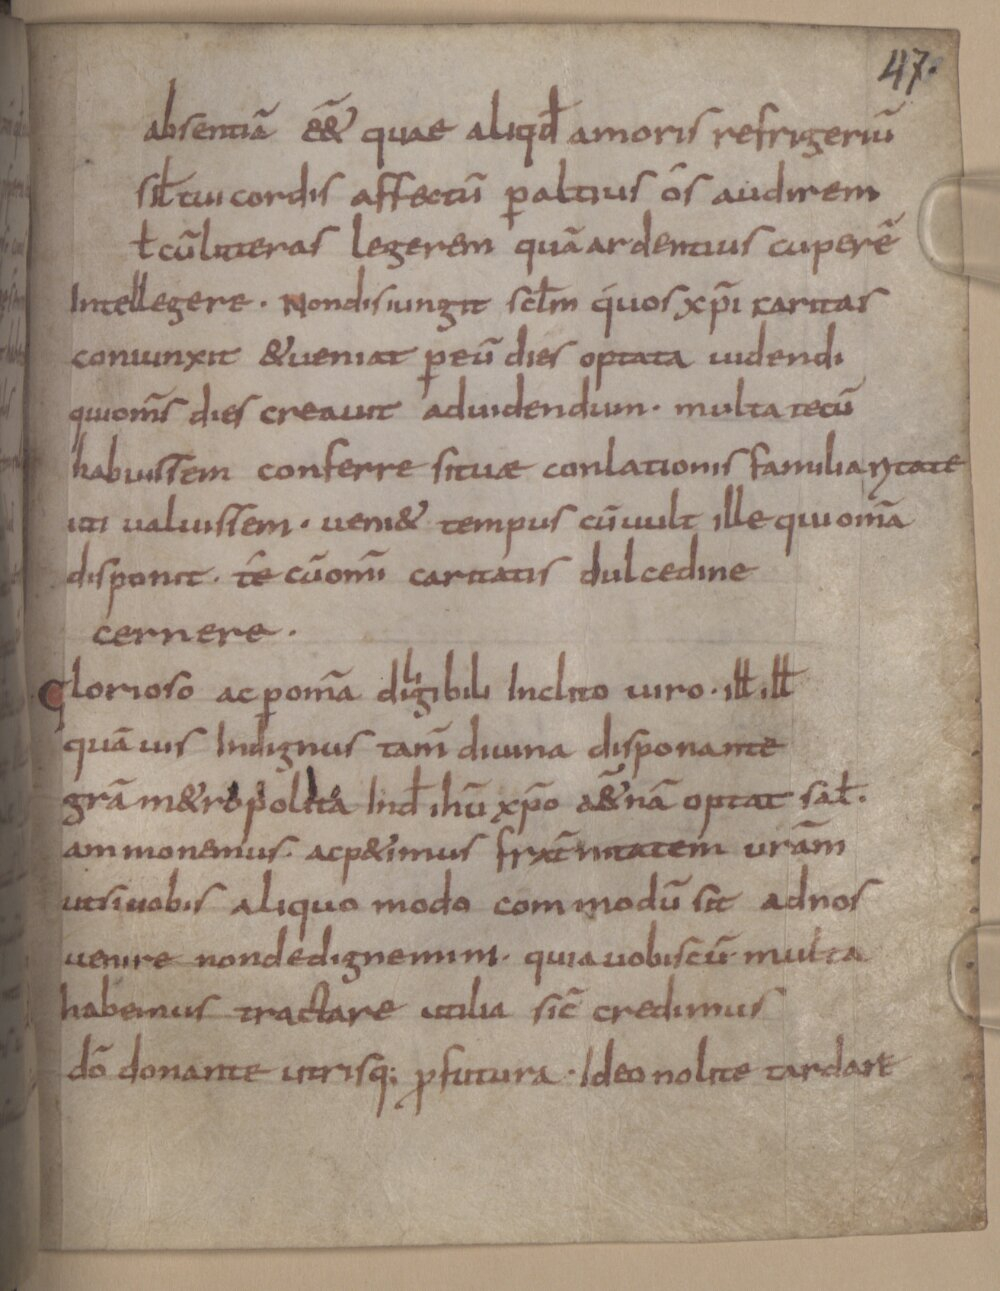 47.
absentiā eē& quae aliqđ amoris refrigeriū
siƚ tui cordis affectū ꝑaltius ōs audirem
ƚ cū litteras legerem quā ardentius cuperē
Intellegere · Non disiungit scƚm quos xp̄i caritas
coniunxit &ueniat ꝑeū dies optata uidendi
qui om̄s dies creauit aduidendum · multa tecū
habuissem conferre situæ conlationis familiaritate
uti ualuissem · ueni& tempus cū uult ille qui om̄a
disponit · té cū om̄i caritatis dulcedine
cernere ·
Glorioso ac ꝑom̄a diligibili Inclito uiro · iƚƚ iƚƚ
quā uis Indignus tam̄ diuina disponante
grā m&ropolita Inđ ihū xp̄o æ&nā optat saƚ ·
ammonemus · ac p&imus frat̄nitatem ur̄am
utsiuobis aliquo modo commodū sit adnos
uenire nondedignemini · quia uobiscū multa
habemus tractare utilia sic̄ credimus
dō donante utrisq; ꝓfutura · Ideo nolite tardare